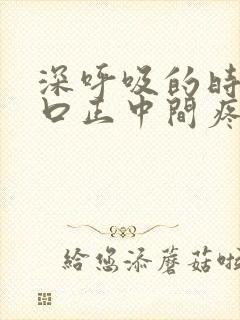 深呼吸的时
口正中間疼
給您添蘑菇啦